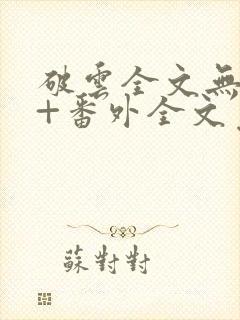 破雲全文無
+番外全文
蘇對對